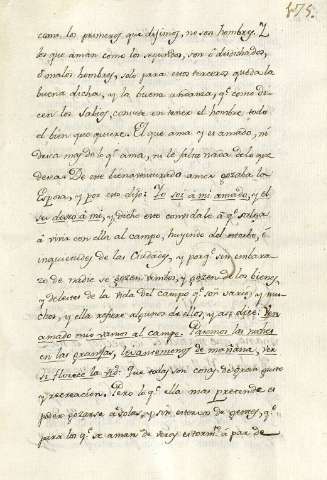 175.
como los primeros que diximos, no son hombres. I
los que aman como los segundos, son ó desdichados,
ó malos hombres, solo para estos terceros queda la
buena dicha, y la buena andanza, qe como di-
cen los Sabios, consiste en tener el hombre, todo
el bien que quiere. El que ama y es amado, ni
desea mas de lo qe ama, ni le falta nada de lo que
desea. De este bienaventurado amor gozaba la
Esposa, y por esto dijo: Yo soi á mi amado, y el
su deseo á mi, y dicho esto convidale á qe salga
á vivir con ella al campo, huyendo del estorbo, é
inquietudes de las Ciudades, y porqe sin embara-
zo de nadie se gozen ambos, y gozen de los bienes,
y deleites de la vida del campo qe son varios, y mu-
chos, y ella refiere algunos de ellos, y asi dice: Ven
amado mio vamos al campo. Pasemos las noches
en las granjas, levantemonos de mañana, ver
si florece la vid. Que todas son cosas de gran gusto
y recreacion. Pero lo qe ella mas pretende es
poder gozarse á solas, y sin estorvo de gentes, qe
para los qe se aman de veras es torm.to á par de